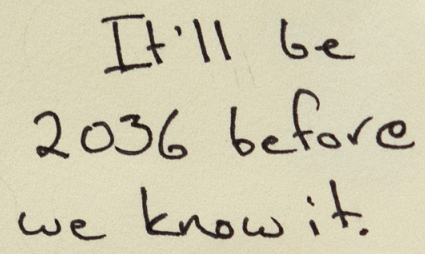 It'll be
2036 before
we know it.